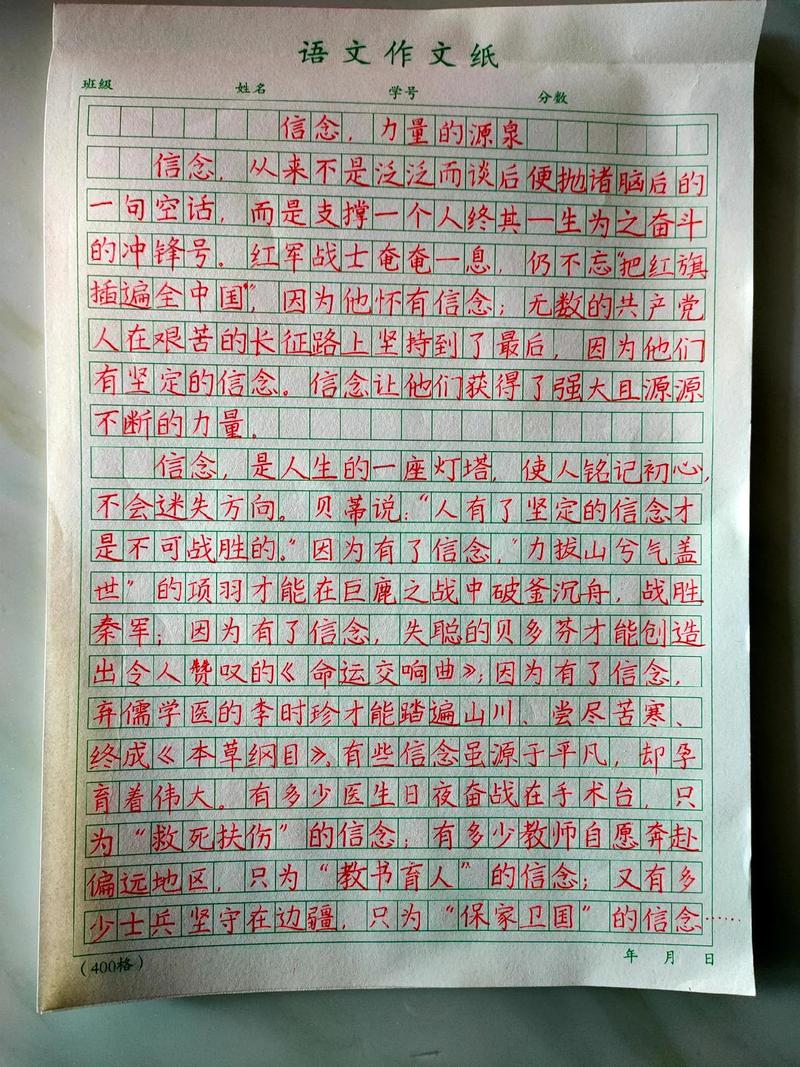 语文作文纸
班级 姓名 学号 分数
信念，力量的源泉
信念，从来不是泛泛而谈后便抛诸脑后的
一句空话，而是支撑一个人终其一生为之奋斗
的冲锋号。红军战士奄奄一息，仍不忘"把红旗
插遍全中国"，因为他怀有信念；无数的共产党
人在艰苦的长征路上坚持到了最后，因为他们
有坚定的信念。信念让他们获得了强大且源源
不断的力量。
信念，是人生的一座灯塔，使人铭记初心，
不会迷失方向。贝蒂说："人有了坚定的信念才
是不可战胜的。"因为有了信念，"力拔山兮气盖
世"的项羽才能在巨鹿之战中破釜沉舟，战胜
秦军；因为有了信念，失聪的贝多芬才能创造
出令人赞叹的《命运交响曲》；因为有了信念，
弃儒学医的李时珍才能踏遍山川、尝尽苦寒、
终成《本草纲目》。有些信念虽源于平凡，却孕
育着伟大。有多少医生日夜奋战在手术台，只
为"救死扶伤"的信念；有多少教师自愿奔赴
偏远地区，只为"教书育人"的信念；又有多
少士兵坚守在边疆，只为"保家卫国"的信念……
（400格） 年 月 日